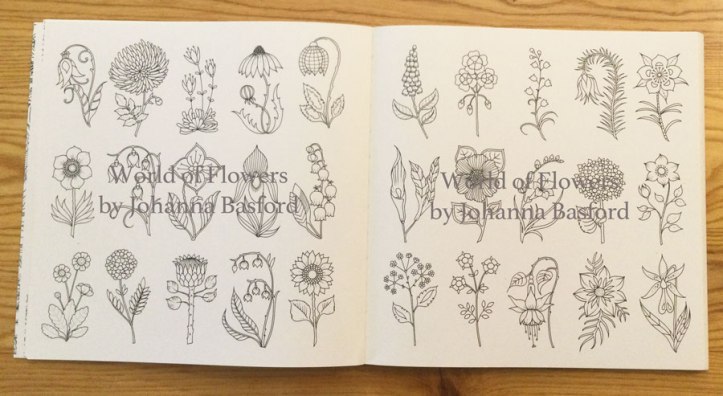 World of Flowers
by Johanna Basford
World of Flowers
by Johanna Basford